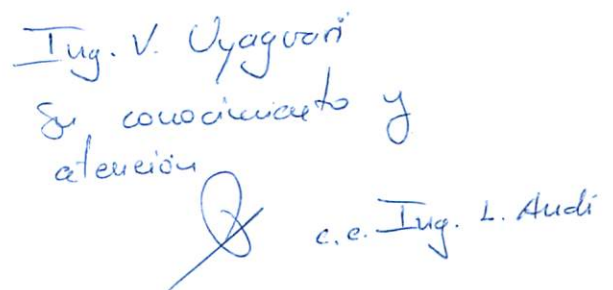 Ing. V. Uyaguari
Su conocimiento y
atención
c.c. Ing. L. Andi